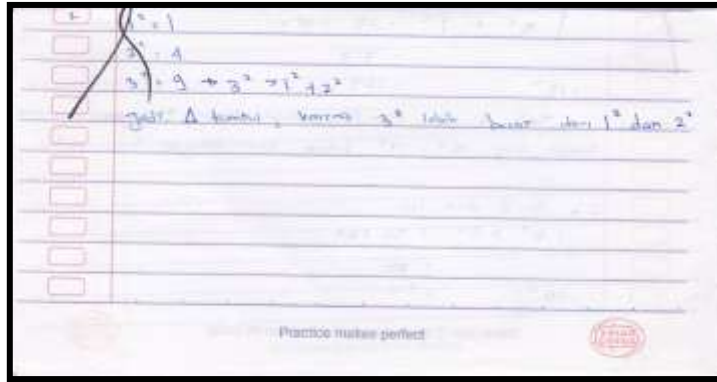 1² = 1
2² = 4
3² = 9 → 3² > 1² + 2²
Jadi Δ tumpul, karena 3² lebih besar dari 1² dan 2²
Practice makes perfect